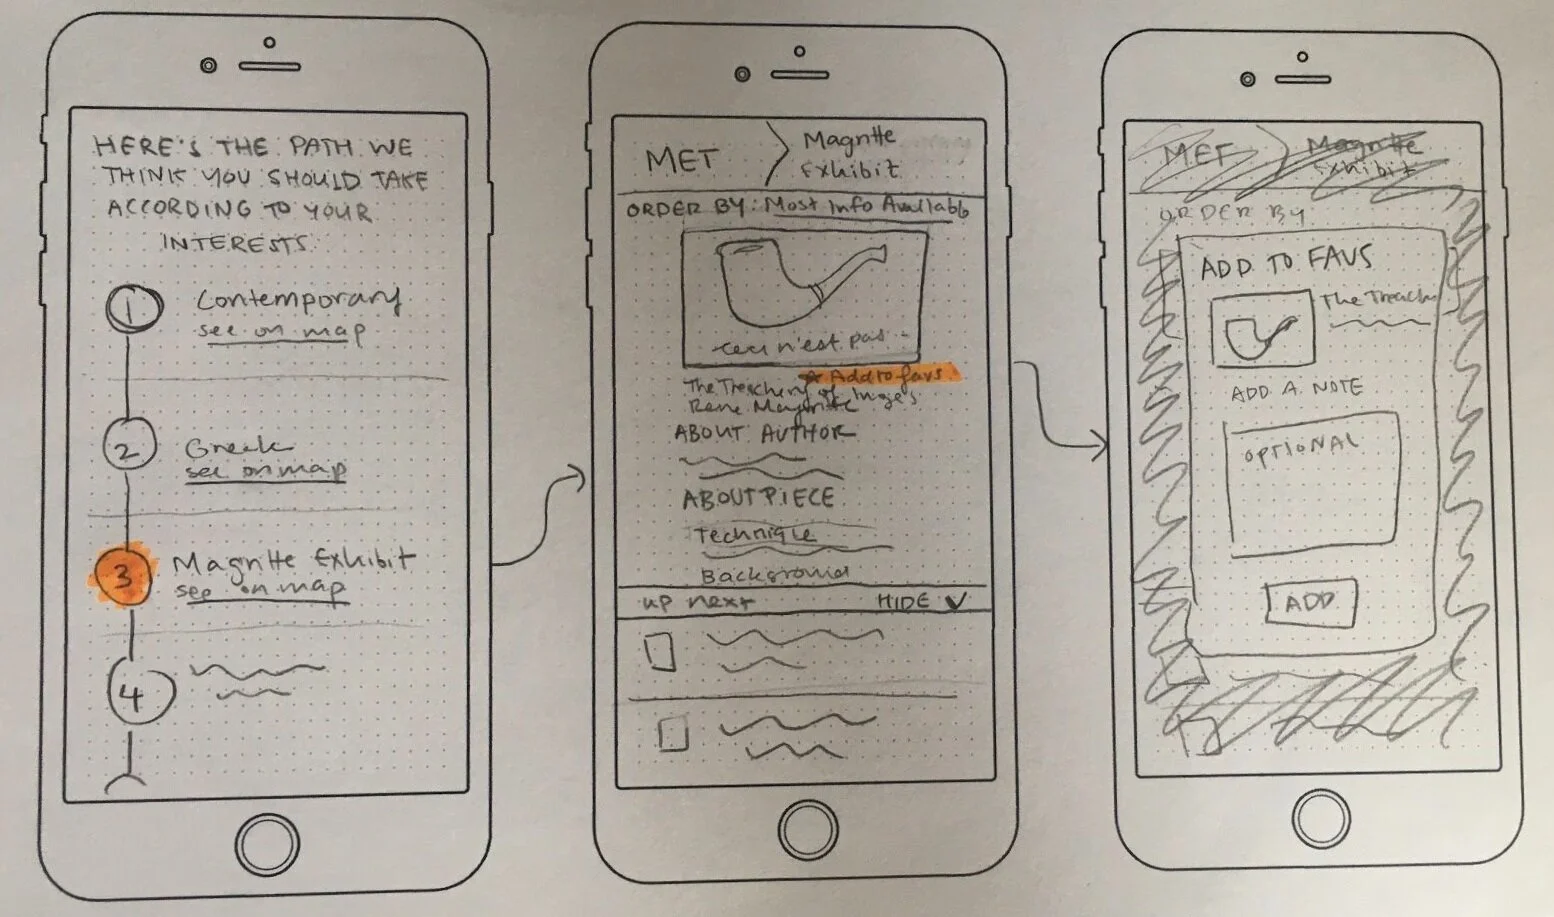 HERE'S THE PATH WE
THINK YOU SHOULD TAKE
ACCORDING TO YOUR
INTERESTS
1
Contemporary
see on map
2
Greek
see on map
3
Magritte Exhibit
see on map
4
MET
Magritte
Exhibit
ORDER BY: Most Info Availabb
ceci n'est pas
Add to favs
The Treachery of Images
Rene Magritte
ABOUT AUTHOR
ABOUT PIECE
Technique
Background
up next
HIDE
MET
Magritte
Exhibit
ORDER BY
ADD TO FAVS
The Treach
ADD A NOTE
OPTIONAL
ADD